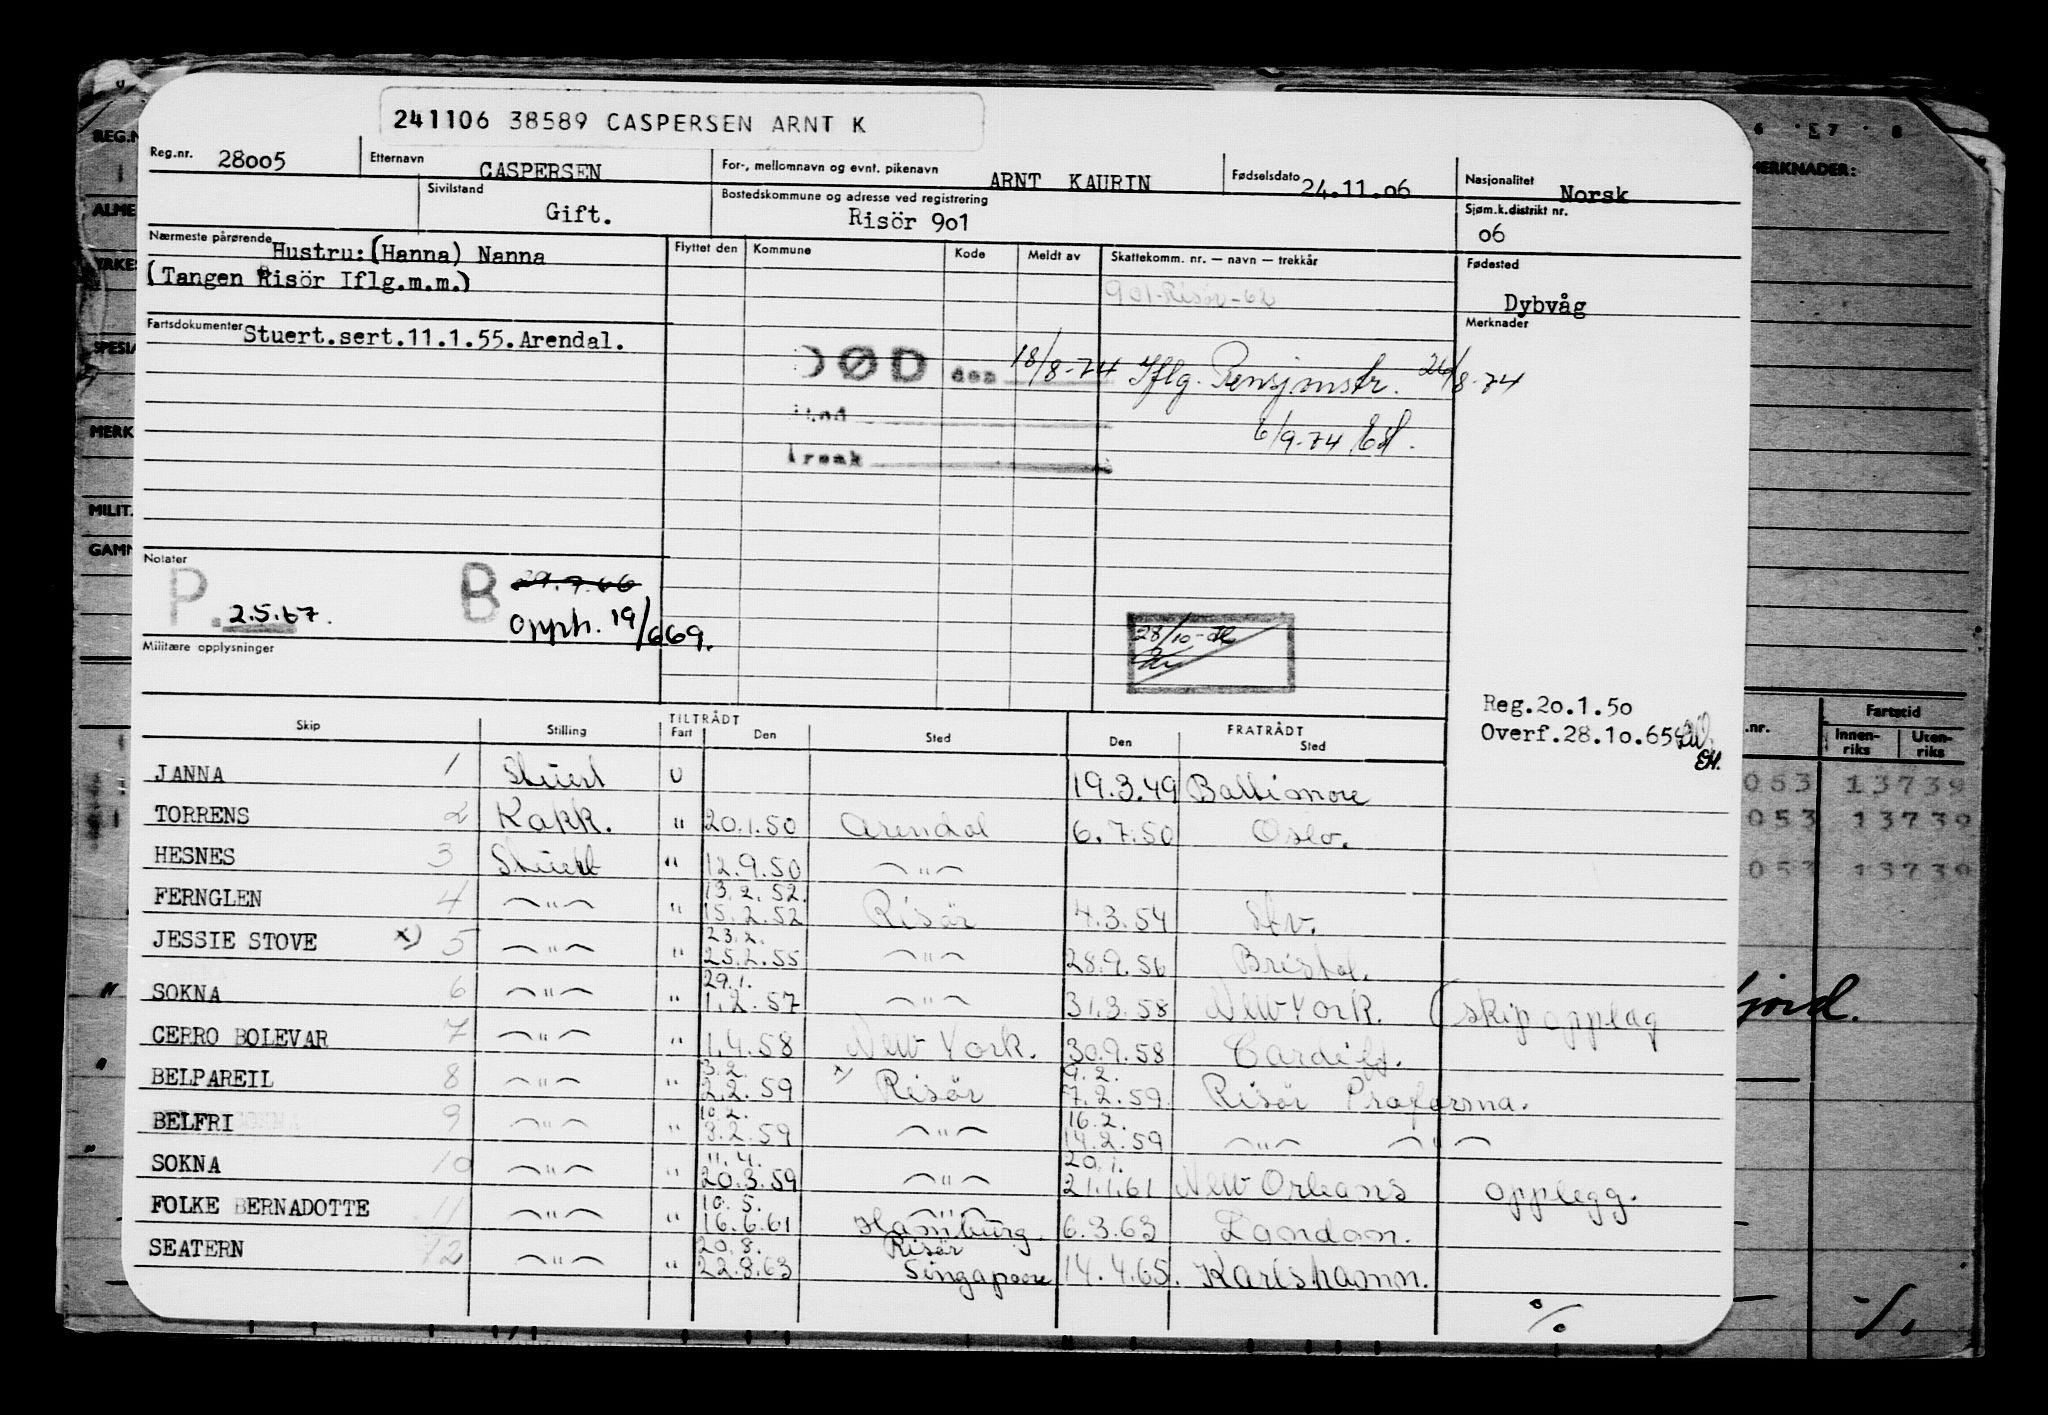 241106 38589 CASPERSEN ARNT K
Reg.nr. 28005 Etternavn CASPERSEN For-, mellomnavn og evnt. pikenavn ARNT KAURIN Fødselsdato 24.11.06 Nasjonalitet Norsk
Sivilstand Gift. Bostedskommune og adresse ved registrering Risör 901 Sjøm.k.distrikt nr. 06
Nærmeste pårørende Hustru: (Hanna) Nanna
(Tangen Risör Iflg.m.m.)
Flyttet den Kommune Kode Meldt av Skattekomm. nr. — navn — trekkår
901-Risör-62
Fødested Dybvåg
Merknader
Fartsdokumenter Stuert.sert.11.1.55.Arendal.
DØD den 18/8-74 Iflg. Pensjonstr. 26/8-74
6/9-74
Sted
Årsak
Notater
P. 2.5.67. B 29.7.66
Opph. 19/6 69.
28/10-
Militære opplysninger
Reg.20.1.50
Overf.28.10.65
EH.
Skip Stilling TILTRÅDT Fart Den Sted FRATRÅDT Den Sted
JANNA 1 Stuert U 19.3.49 Baltimore
TORRENS 2 Kokk. " 20.1.50 Arendal 6.7.50 Oslo.
HESNES 3 Stuert " 12.9.50 — " —
FERNGLEN 4 — " — " 13.2.52. 15.2.52 Risör 4.3.54 Stv.
JESSIE STOVE x) 5 — " — " 23.2. 25.2.55 — " — 28.9.56 Bristol.
SOKNA 6 — " — " 29.1. 1.2.57 — " — 31.3.58 New York. (skip opplag
CERRO BOLEVAR 7 — " — " 1.4.58 New York. 30.9.58 Cardiff.
BELPAREIL 8 — " — " 3.2. 2.2.59 x) Risör 9.2. 7.2.59. Risör Proforma.
BELFRI 9 — " — " 10.2. 8.2.59 — " — 16.2. 14.2.59 — " — — " —
SOKNA 10 — " — " 11.4. 20.3.59 — " — 20.1. 21.1.61 New Orleans opplegg.
FOLKE BERNADOTTE 11 — " — " 10.5. 16.6.61 — " — Hamburg. 6.3.63 London.
SEATERN 12 — " — " 20.8. 22.8.63 Risör Singapore 14.4.65. Karlshamn.
%
REG.N
ALME
YRKES
SPESIA
MERK
MILIT.
GAMM
6 7 8
MERKNADER:
.nr. Fartstid
Innen-riks Uten-riks
053 13739
053 13739
053 13739
jord.
-/.